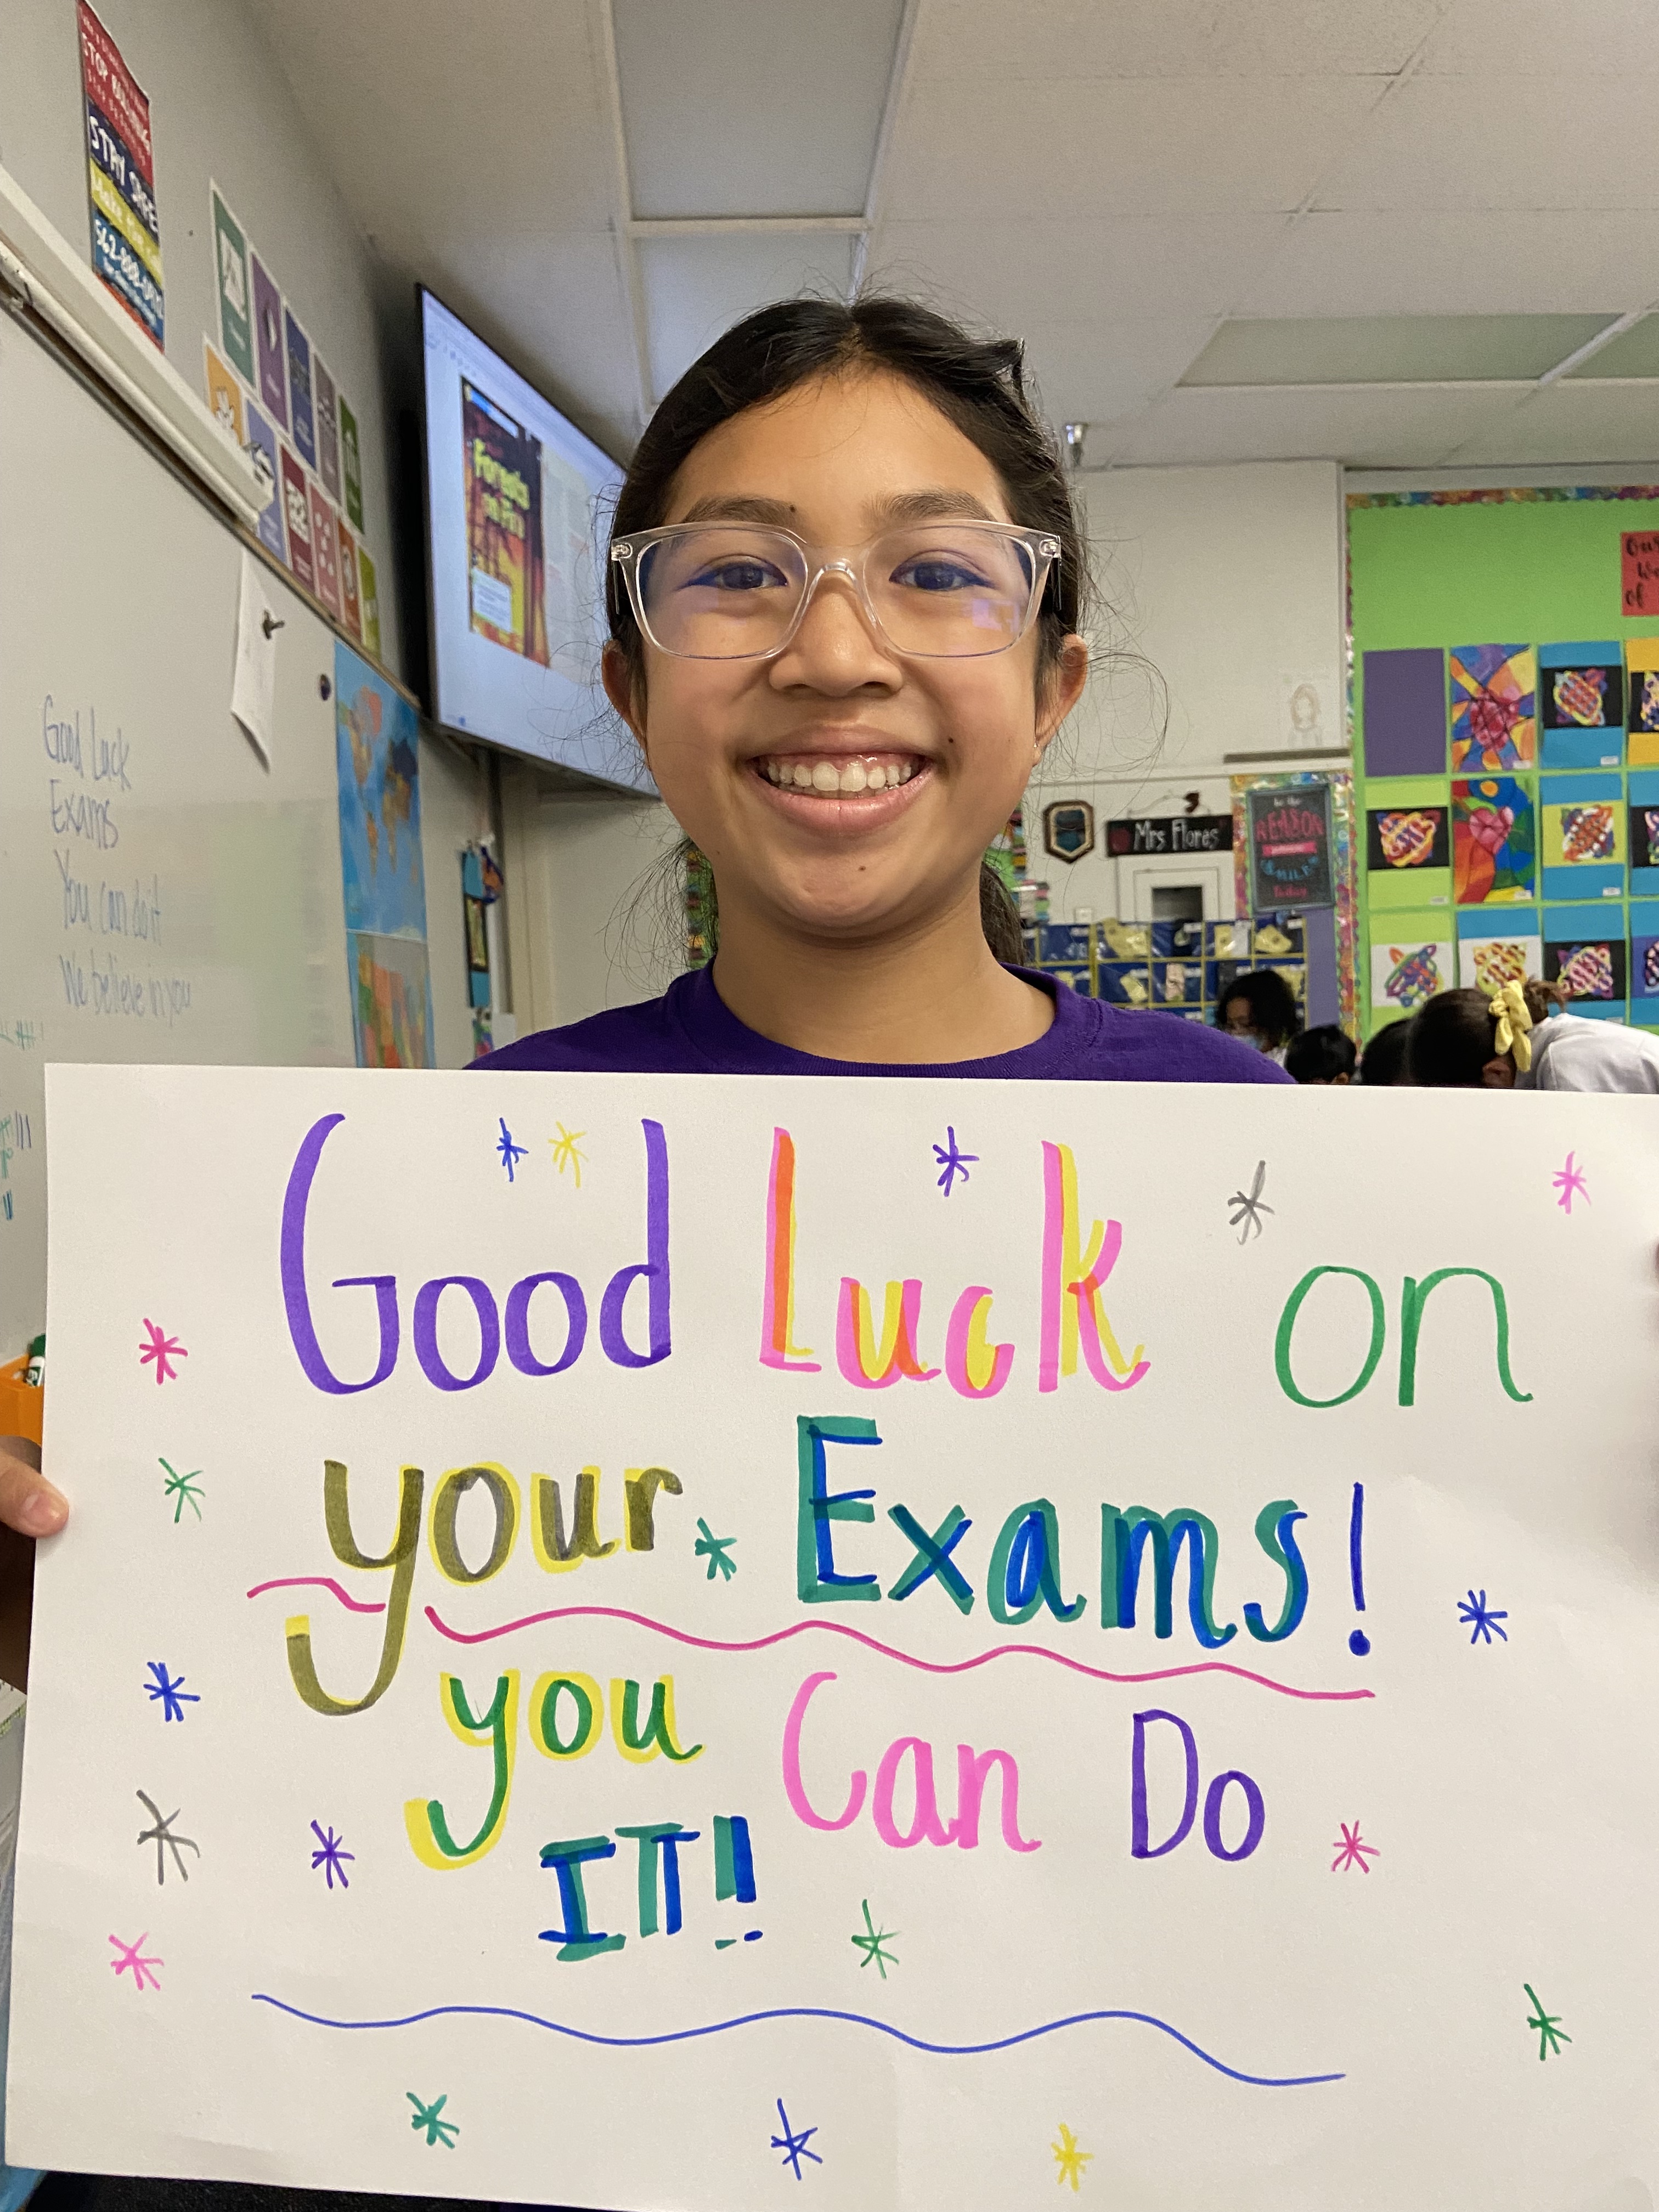 STOP BULLYING
STAY SAFE
Forests
on Fire
Good Luck
Exams
You can do it
We believe in you
Mrs Flores
be the
REASON
SMILES
Today
Our
of
Good Luck on
your Exams!
you Can Do
IT!!